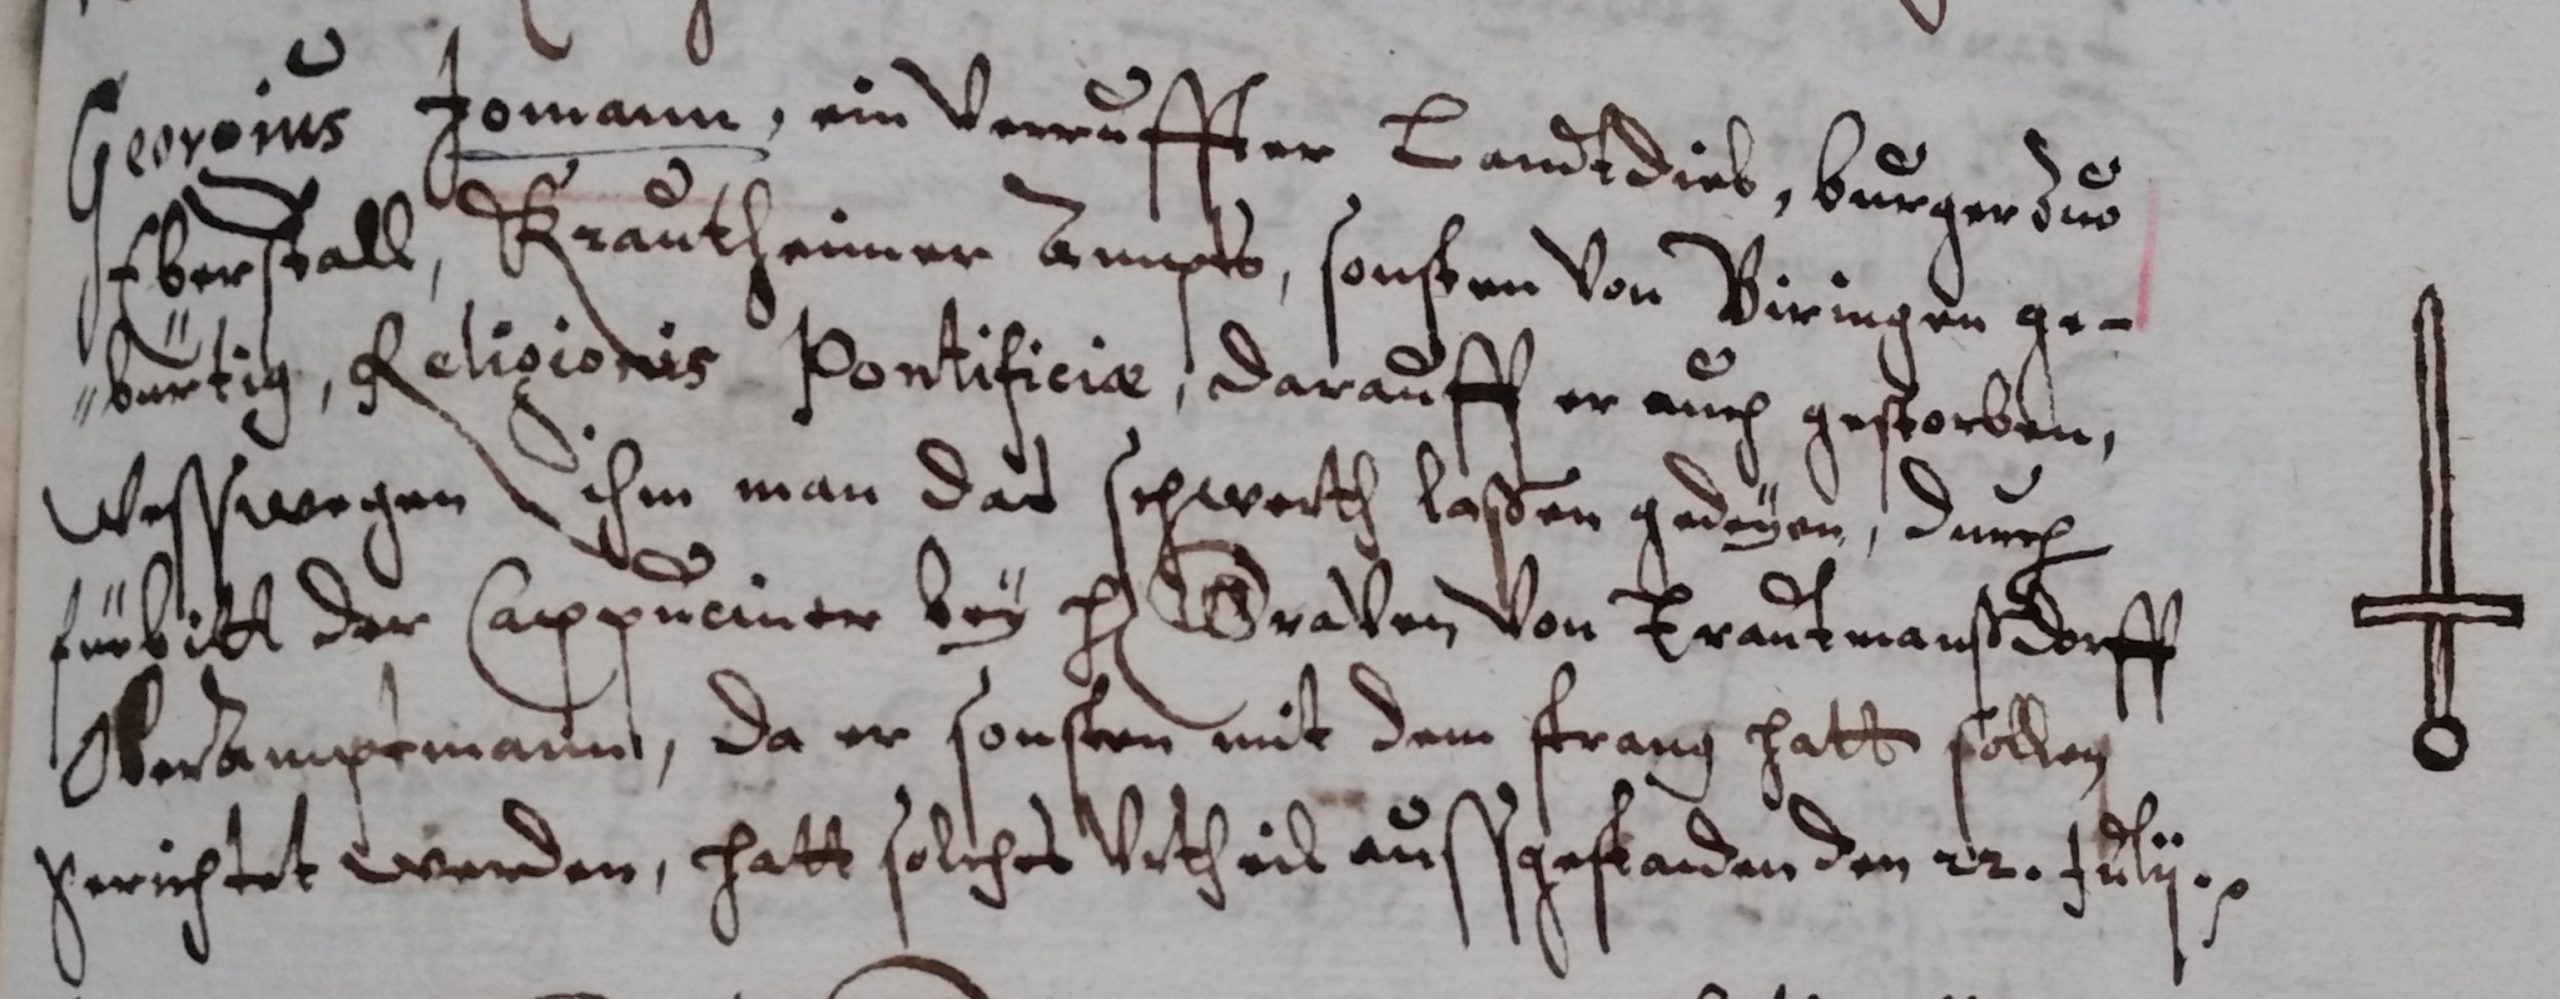 Georgius Jomann, ein Verruffter Landtdieb, burger zuo
Eberstall, Krautheimer Ampts, sonsten von Biringen ge-
"bürtig, Religionis Pontificiæ, darauff er auch gestorben,
Weßwegen ihm man das schwerth laßen gedeÿen, durch
fürbitt der Cappuciner beÿ H. Graven von Trautmanßdorff
Oberamptmann, da er sonsten mit dem strang hatt sollen
gerichtet werden, hatt solches Urtheil außgestanden den 22. Julij.